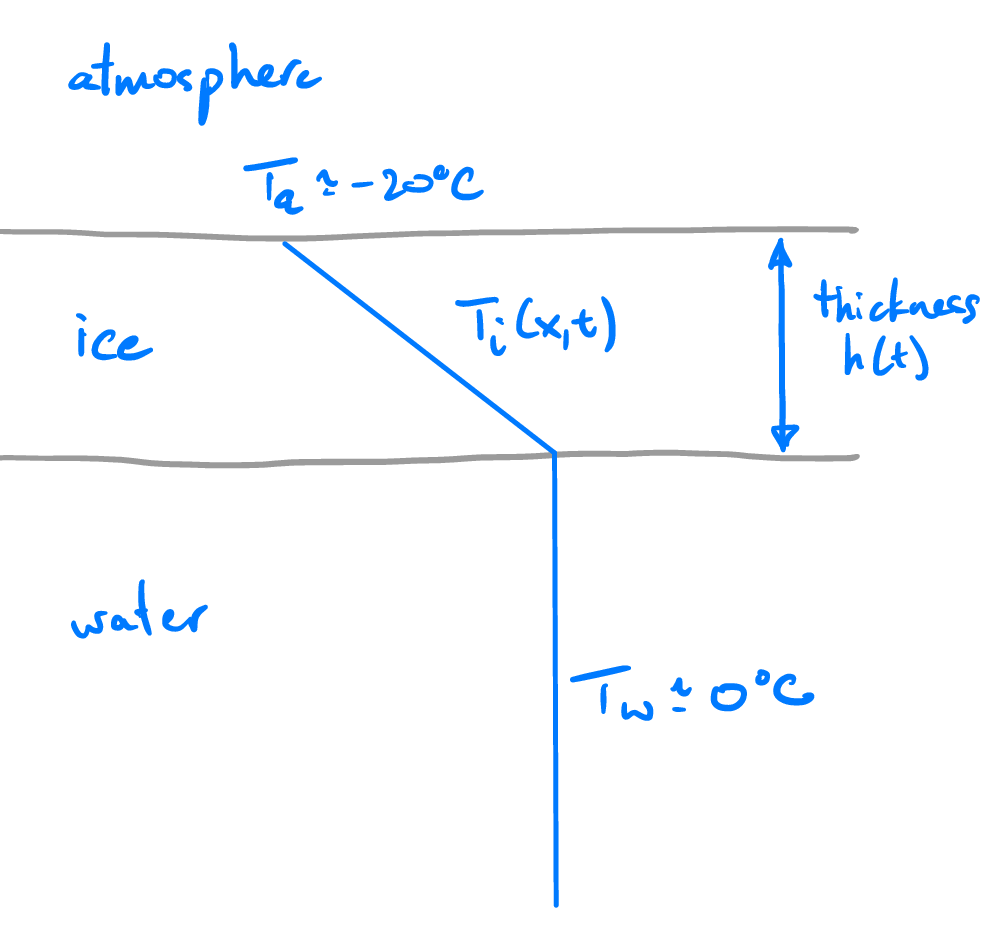 atmosphere
Ta ≃ -20°C
ice
Ti(x,t)
thickness
h(t)
water
Tw ≃ 0°C